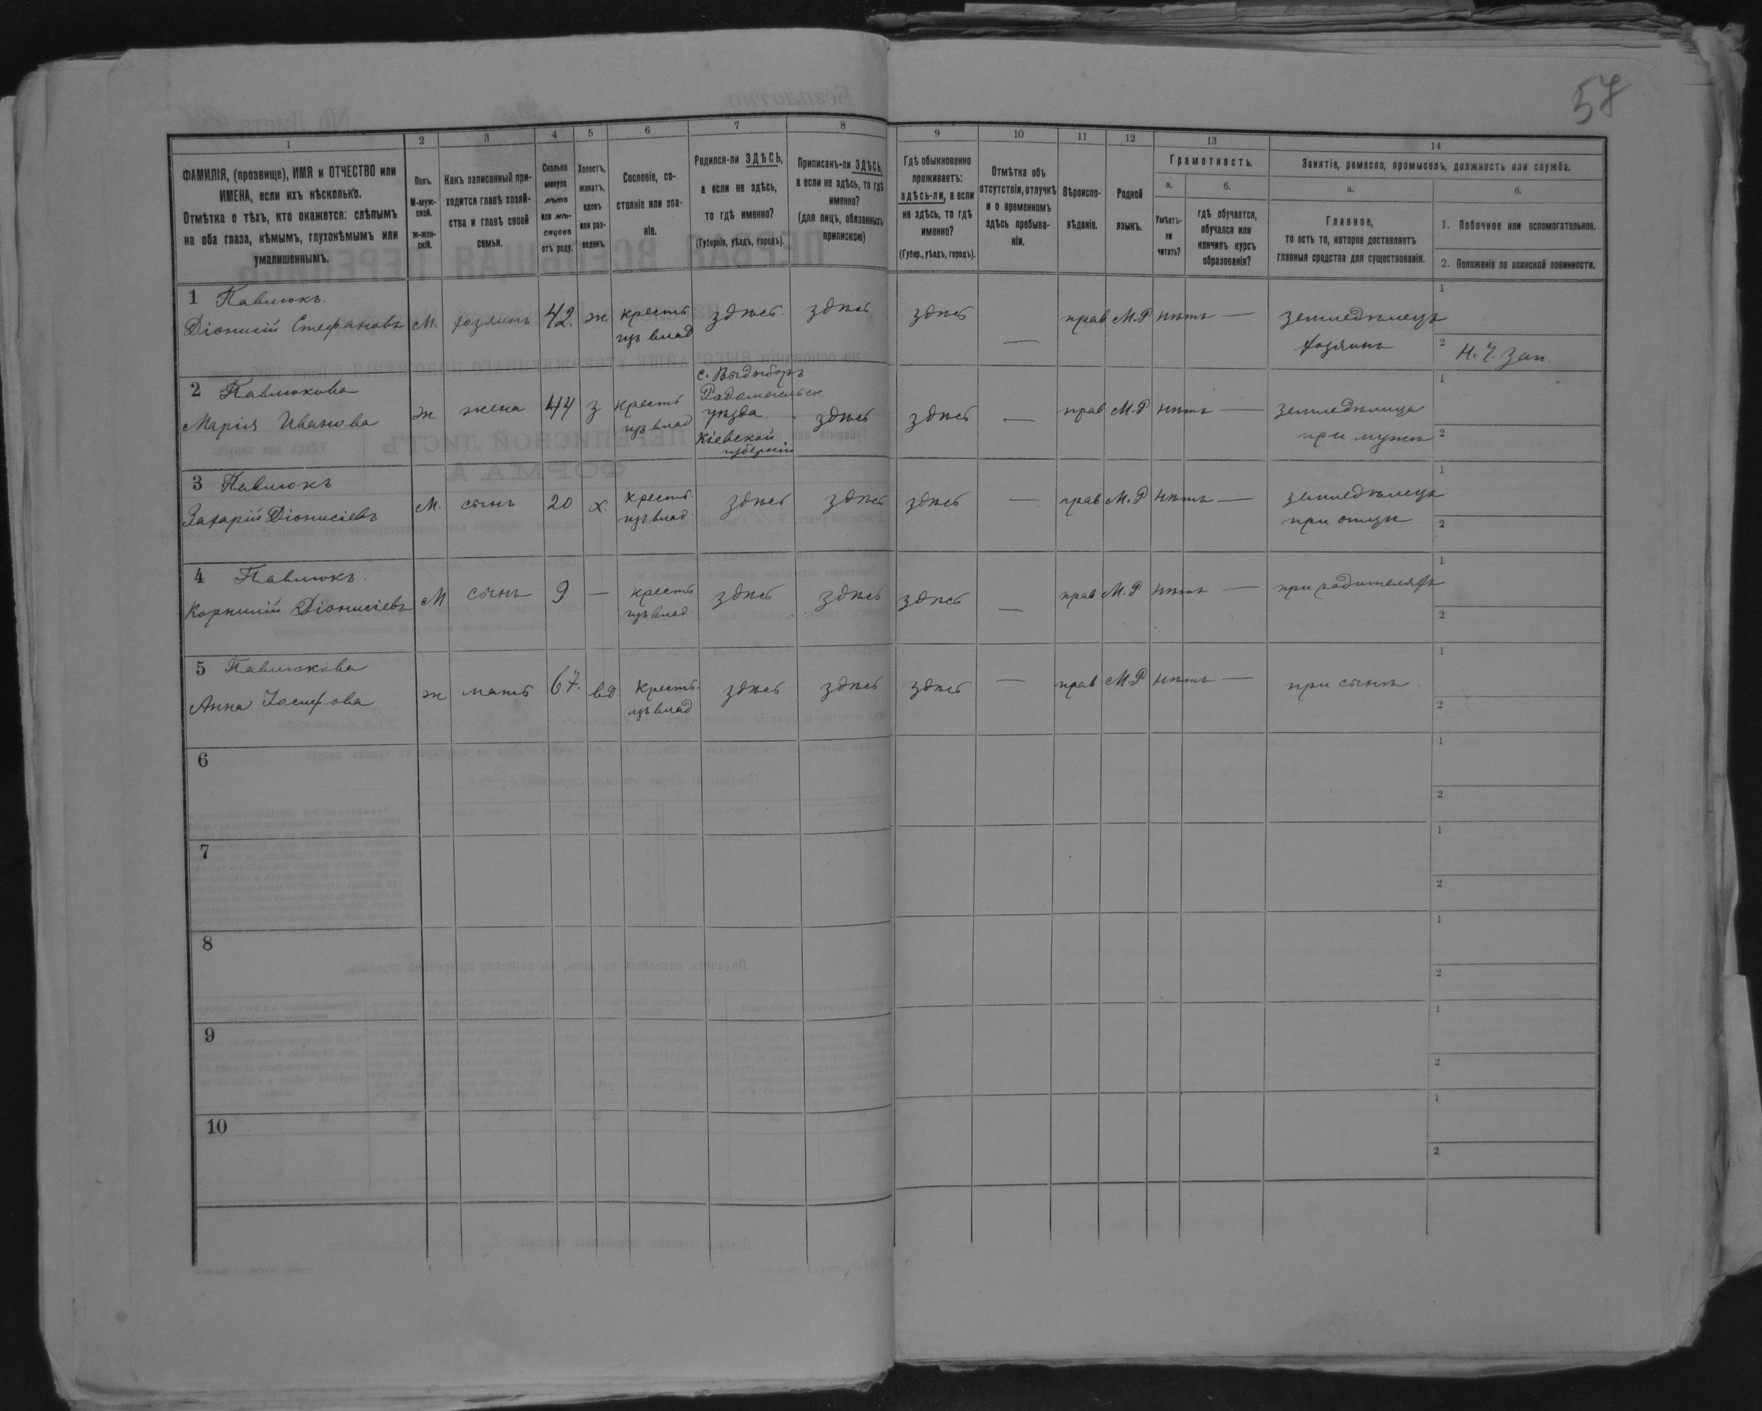 57
1
2
3
4
5
6
7
8
9
10
11
12
13
14
ФАМИЛІЯ, (прозвище), ИМЯ и ОТЧЕСТВО или
ИМЕНА, если ихъ нѣсколько.
Отмѣтка о тѣхъ, кто окажется: слѣпымъ
на оба глаза, нѣмымъ, глухонѣмымъ или
умалишеннымъ.
Полъ.
М-муж-
ской.
ж-жен-
скій.
Какъ записанный при-
ходится главѣ хозяй-
ства и главѣ своей
семьи.
Сколько
минуло
лѣтъ
или мѣ-
сяцевъ
отъ роду.
Холостъ,
женатъ,
вдовъ
или раз-
веденъ.
Сословіе, со-
стояніе или зва-
ніе.
Родился-ли ЗДѢСЬ,
а если не здѣсь,
то гдѣ именно?
(Губернія, уѣздъ, городъ).
Приписанъ-ли ЗДѢСЬ,
а если не здѣсь, то гдѣ
именно?
(для лицъ, обязанныхъ
припискою)
Гдѣ обыкновенно
проживаетъ:
здѣсь-ли, а если
не здѣсь, то гдѣ
именно?
(Губер., уѣздъ, городъ).
Отмѣтка объ
отсутствіи, отлучкѣ
и о временномъ
здѣсь пребыва-
ніи.
Вѣроиспо-
вѣданіе.
Родной
языкъ.
Грамотность.
а.
б.
Умѣетъ-
ли
читать?
гдѣ обучается,
обучался или
кончилъ курсъ
образованія?
Занятіе, ремесло, промыселъ, должность или служба.
а.
б.
Главное,
то есть то, которое доставляетъ
главныя средства для существованія.
1. Побочное или вспомогательное.
2. Положеніе по воинской повинности.
1 Павлюкъ.
Діонисій Стефановъ М. хозяинъ 42. ж крестъ здѣсь. здѣсь здѣсь — прав М.Р нѣтъ — земледѣлецъ 1
изъ влад
хозяинъ 2 Н. Ч. Зап.
2 Павлюкова
Марія Иванова ж жена 44 з крестъ
изъ влад
Радомысльск
уѣзда
Кіевской
губерніи
здѣсь здѣсь — прав М.Р нѣтъ — земледѣлица 1
при мужѣ 2
3 Павлюкъ
Захарій Діонисіевъ М. сынъ 20 х. крестъ. здѣсь здѣсь здѣсь — прав М.Р нѣтъ — земледѣлецъ 1
изъ влад.
при отцѣ 2
4 Павлюкъ.
Корнилій Діонисіевъ М сынъ 9 — крестъ здѣсь здѣсь здѣсь — прав М.Р нѣтъ — при родителяхъ 1
изъ влад.
2
5 Павлюкова
Анна Іосифова ж мать 67. вд крестъ. здѣсь здѣсь здѣсь — прав М.Р нѣтъ — при сынѣ 1
изъ влад
2
6
1
2
7
1
2
8
1
2
9
1
2
10
1
2